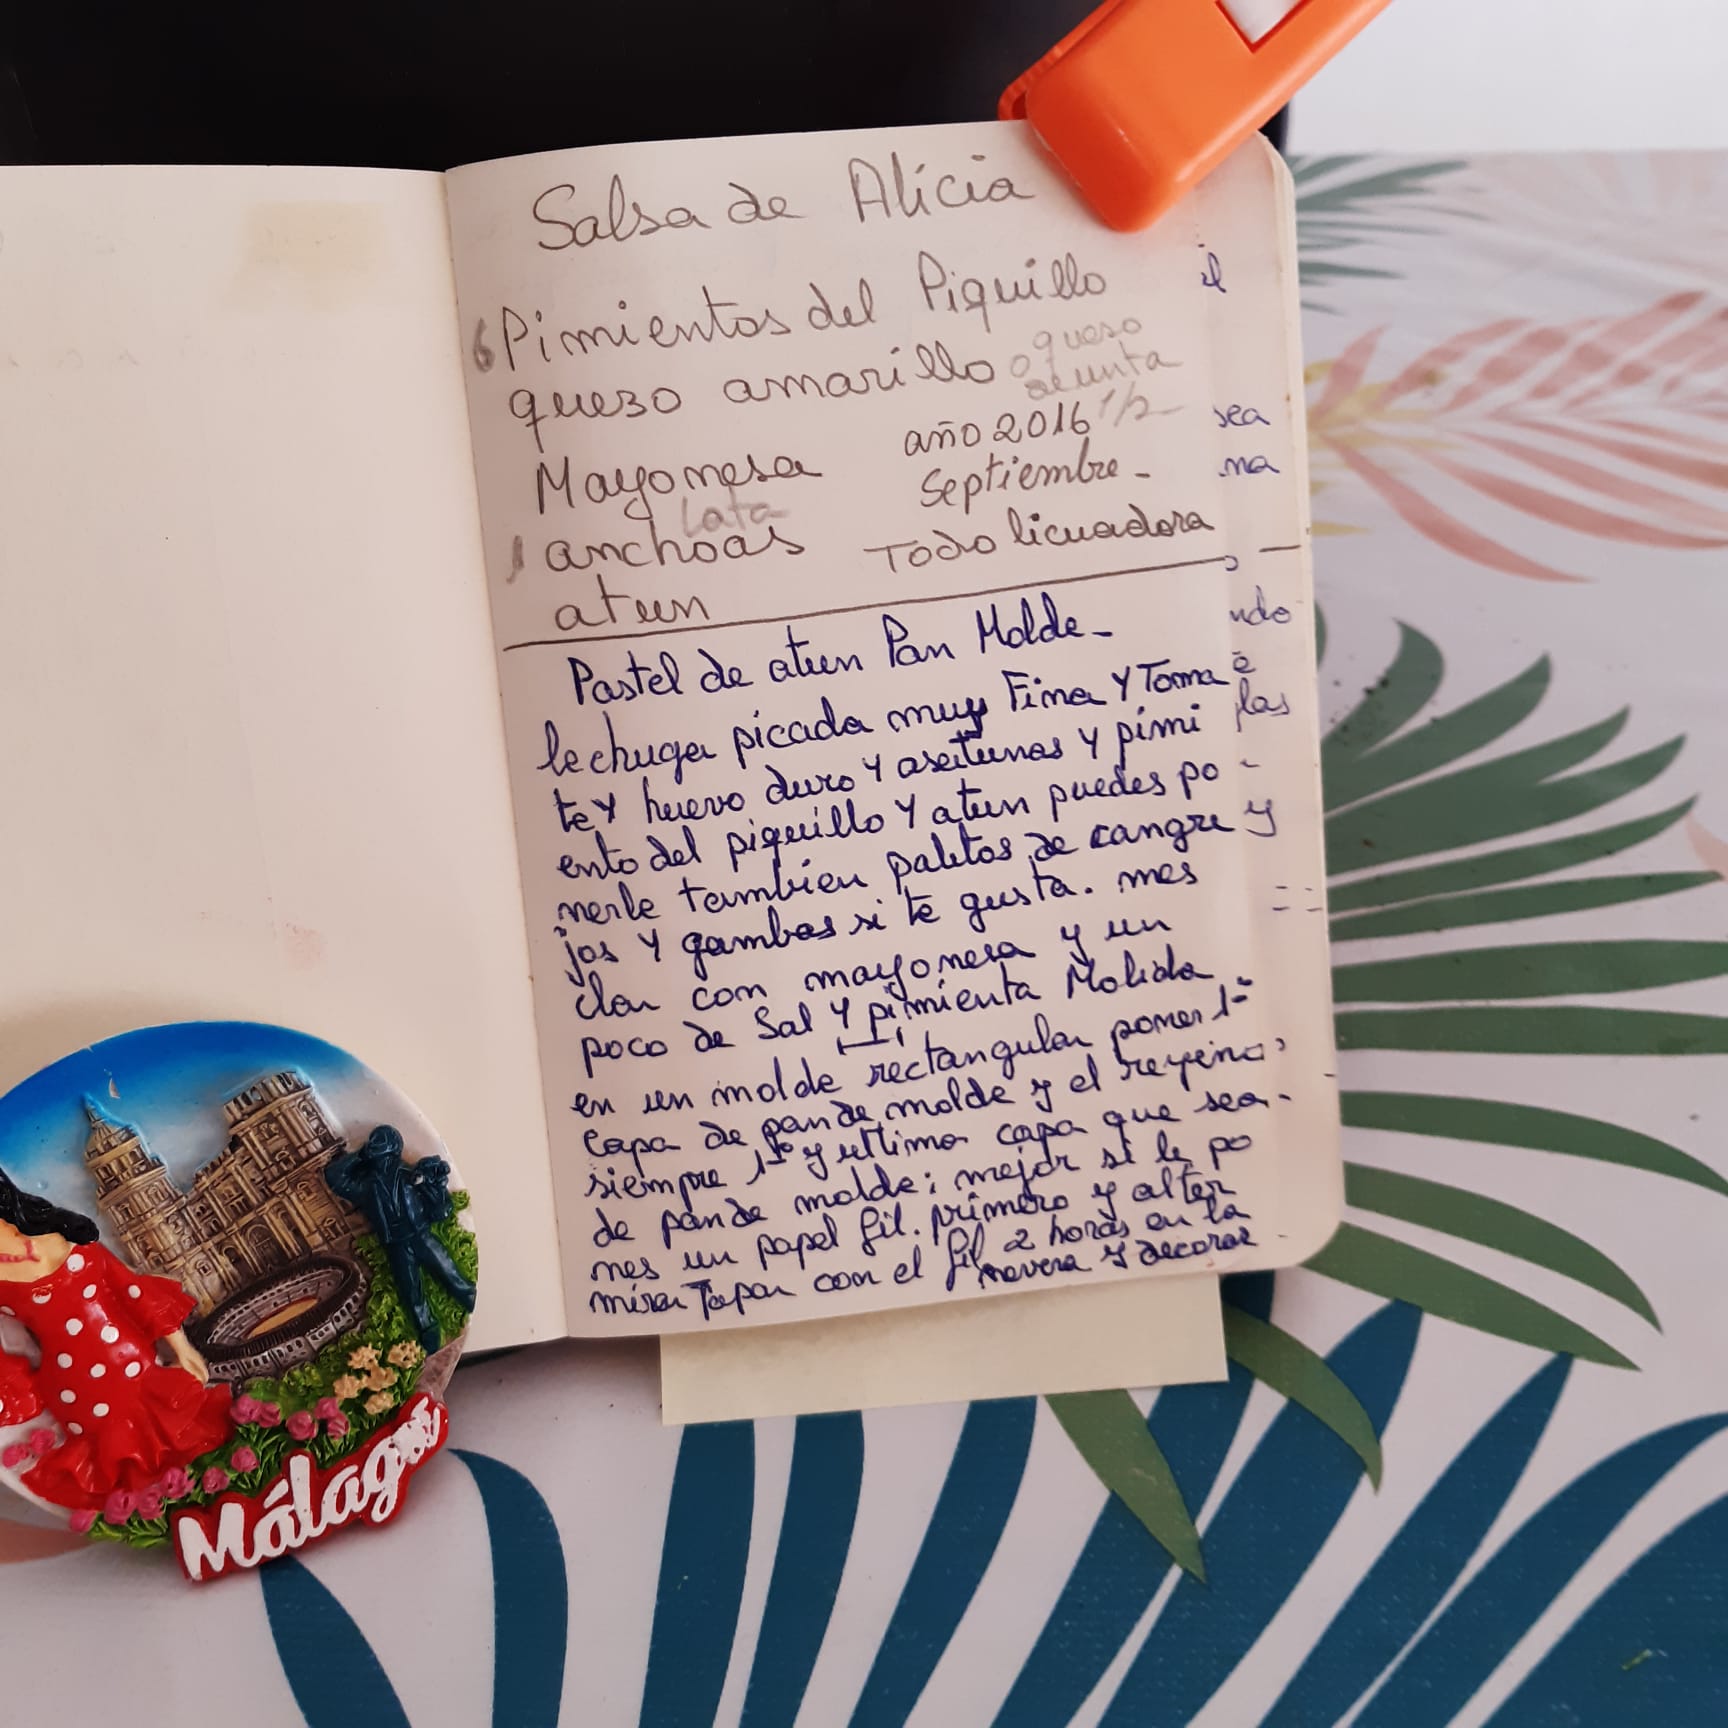 Salsa de Alicia
6 Pimientos del Piquillo
quezo amarillo o queso
de unta
1/2
Mayonesa
año 2016
Septiembre -
1 lata
anchoas
Todo licuadora
atun
Pastel de atun Pan Molde -
lechuga picada muy Fina Y Toma
te Y huevo duro Y aseitunas Y pimi
ento del piquillo Y atun puedes po
nerle tambien palitos de cangre
jos Y gambas si te gusta. mes
clar con mayonesa y un
poco de Sal Y pimienta Molida
en un molde rectangular poner 1ª
capa de pan de molde y el reyeno,
siempre 1ª y ultima capa que sea
de pan de molde; mejor si le po
nes un papel fil. primero y alter
minar Tapar con el fil 2 horas en la
nevera y decorar
el
sea
na
ndo
las
y
Málaga